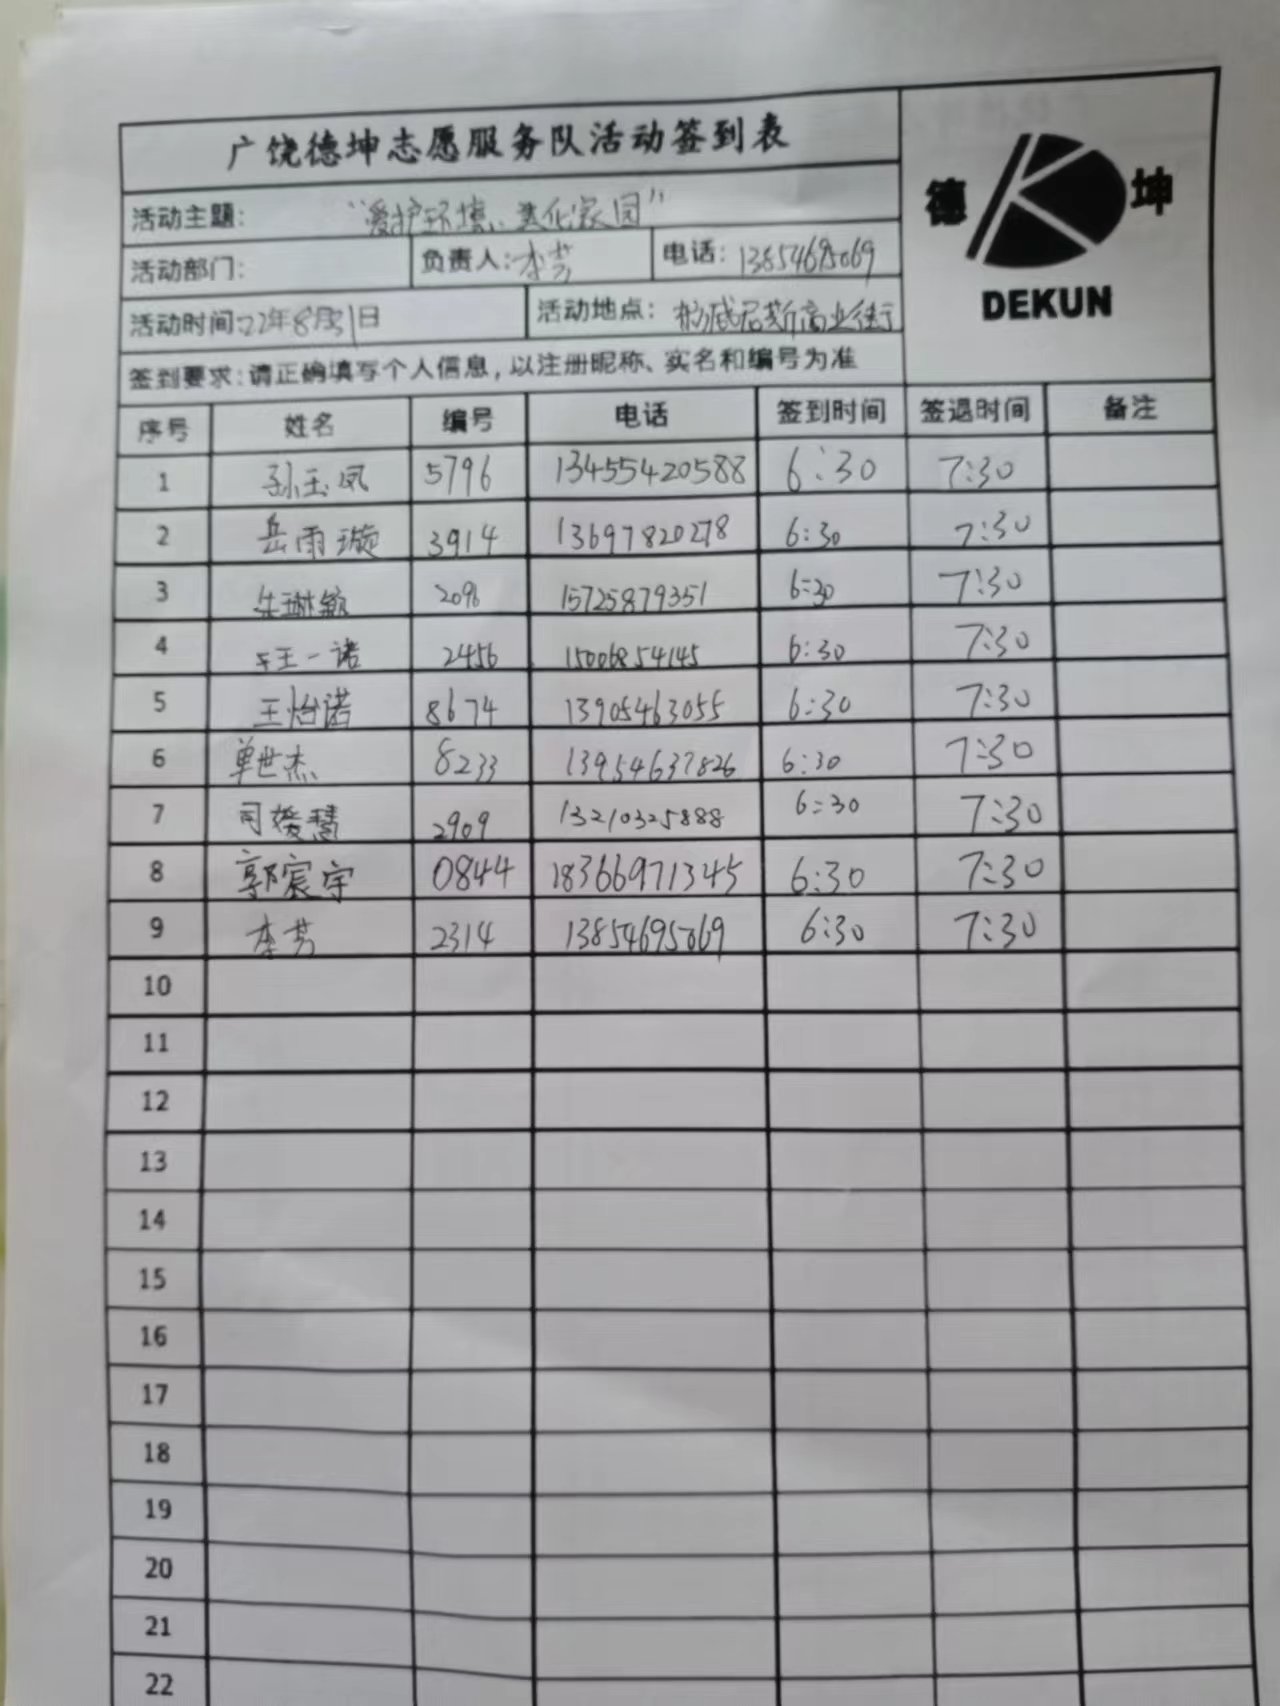 广饶德坤志愿服务队活动签到表
德 坤
DEKUN
活动主题: “爱护环境、美化家园”
活动部门: 负责人:李芳 电话: 13854695069
活动时间22年8月31日 活动地点: 威尼斯商业街
签到要求:请正确填写个人信息,以注册昵称、实名和编号为准
序号 姓名 编号 电话 签到时间 签退时间 备注
1 孙玉凤 5796 13455420588 6:30 7:30
2 岳雨璇 3914 13697820278 6:30 7:30
3 朱琳毓 2096 15725879351 6:30 7:30
4 王一诺 2456 15006854145 6:30 7:30
5 王怡诺 8674 13905463055 6:30 7:30
6 单世杰 8233 13954637826 6:30 7:30
7 司媛慧 2909 13210325888 6:30 7:30
8 郭宸宇 0844 18366971345 6:30 7:30
9 李芳 2314 13854695069 6:30 7:30
10
11
12
13
14
15
16
17
18
19
20
21
22